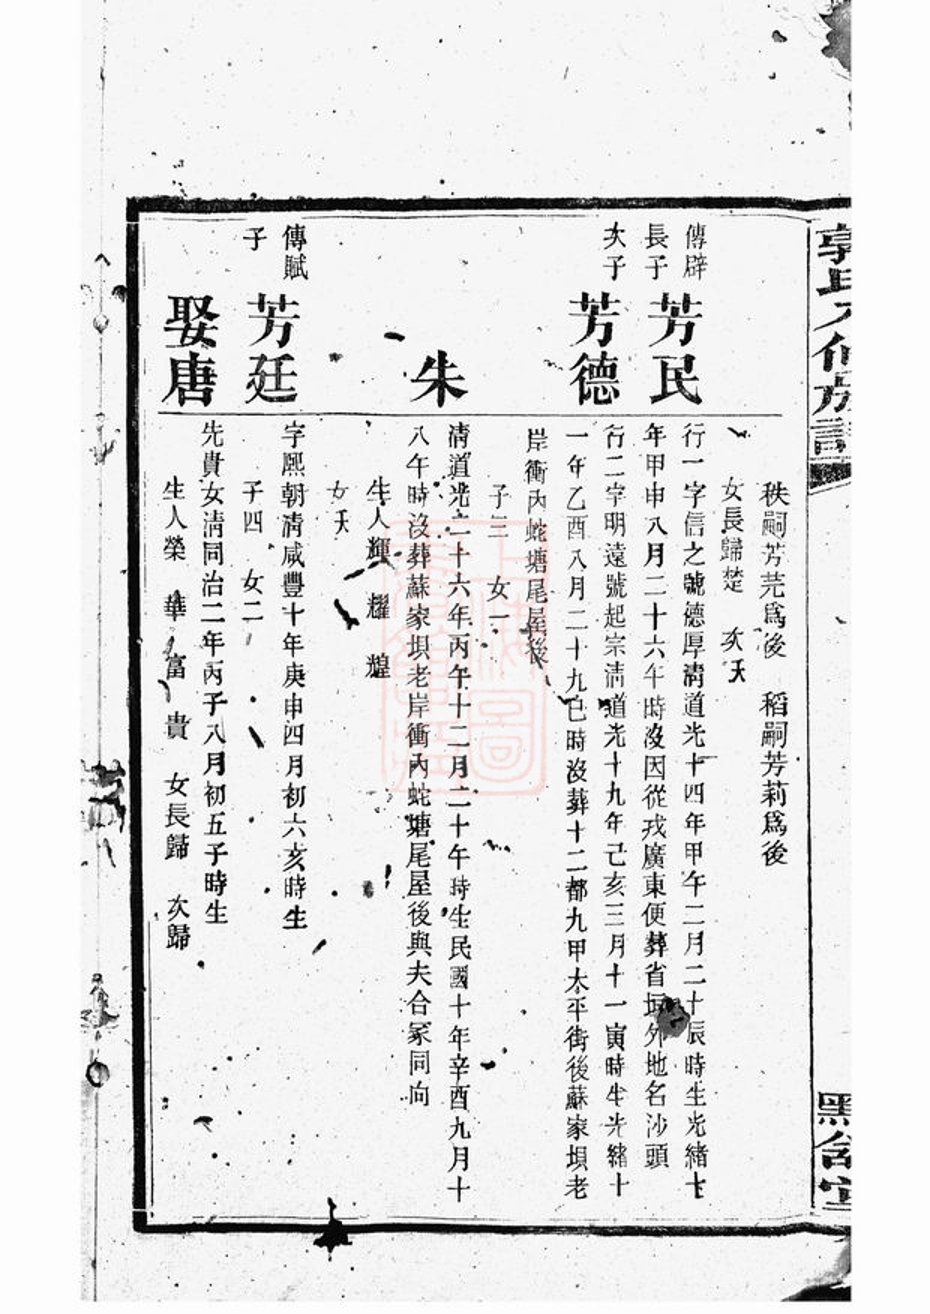 秩嗣芳芫爲後 稻嗣芳莉爲後
女長歸楚 次夭
傳辟
長子
芳民
行一字信之號德厚淸道光十四年甲午二月二十辰時生光緒十
年甲申八月二十六午時沒因從戎廣東便葬省垣外地名沙頭
次子
芳德
行二字明遠號起宗淸道光十九年己亥三月十一寅時生光緒十
一年乙酉八月二十九巳時沒葬十二都九甲太平街後蘇家垻老
岸衝內蛇塘尾屋後
子三 女一
朱
淸道光二十六年丙午十二月二十午時生民國十年辛酉九月十
八午時沒葬蘇家垻老岸衝內蛇塘尾屋後與夫合冢同向
生人輝 耀 煌
女夭
傳賦
子
芳廷
字熙朝淸咸豐十年庚申四月初六亥時生
子四 女二
娶唐
先貴女淸同治二年丙子八月初五子時生
生人榮 華 富 貴 女長歸 次歸